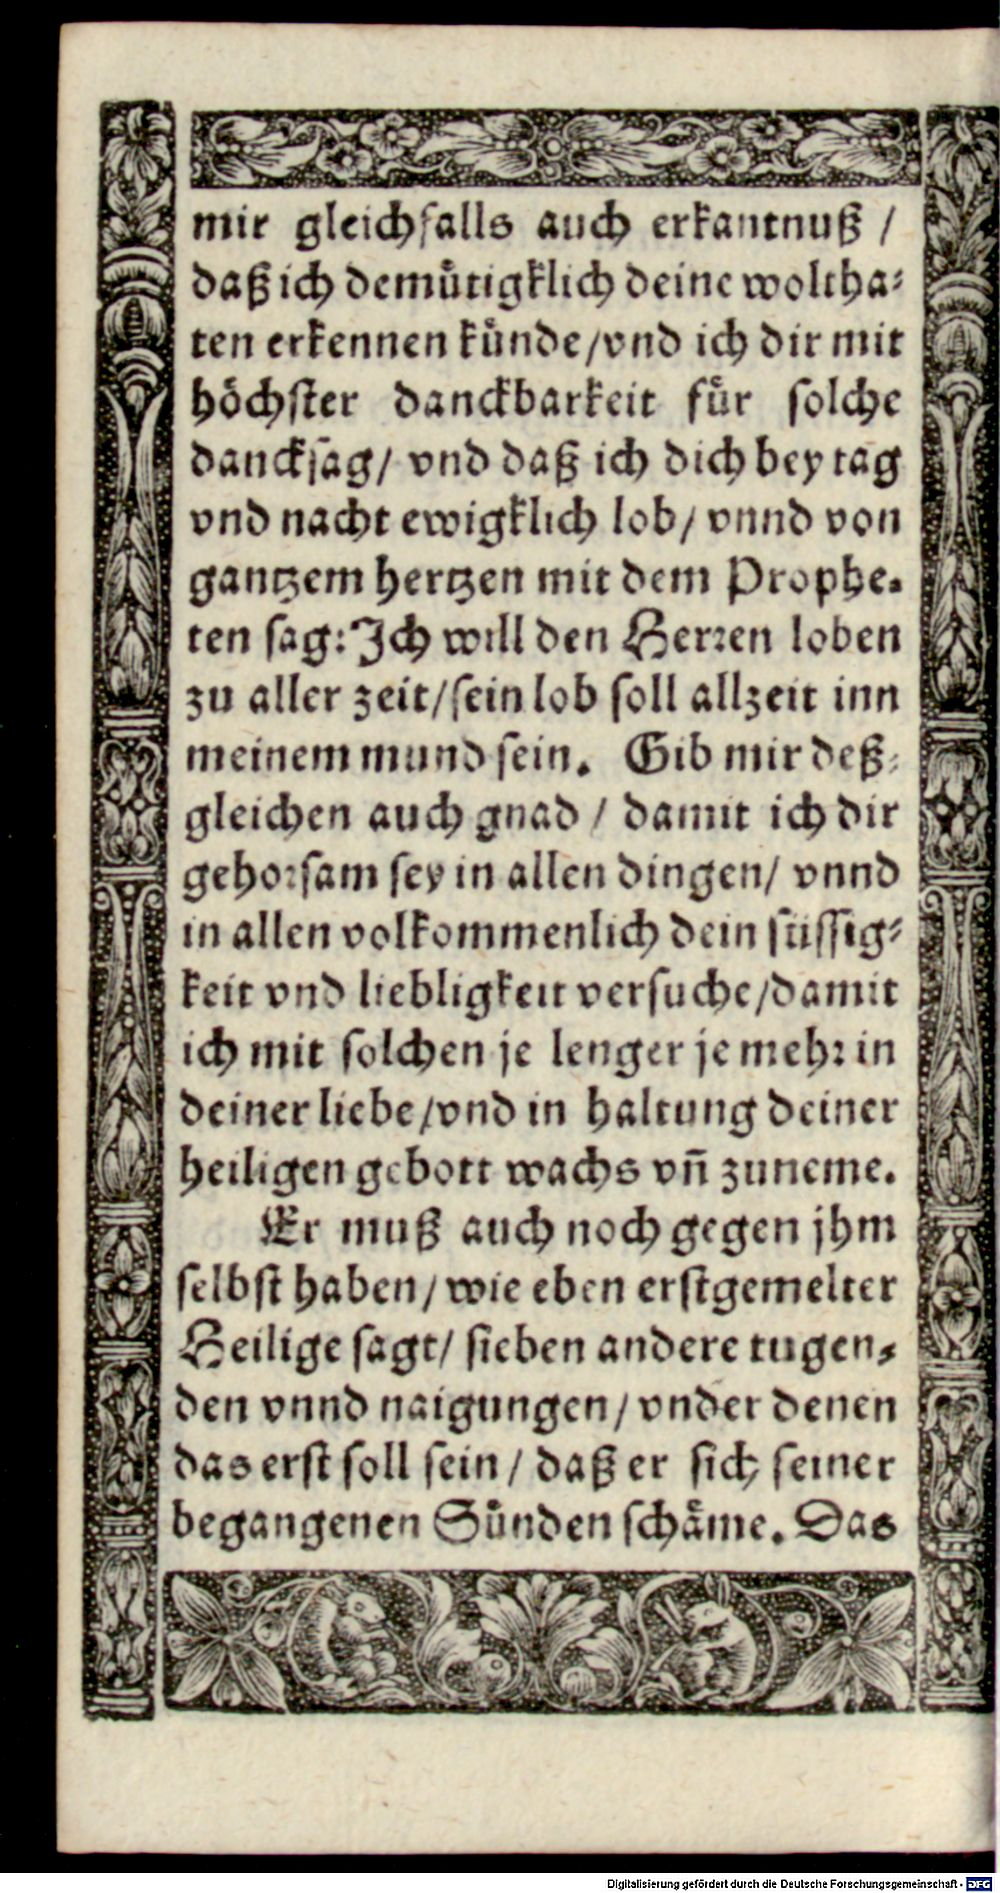 mir gleichfalls auch erkantnuß /
daß ich demuͤtigklich deine woltha⸗
ten erkennen kuͤnde/vnd ich dir mit
hoͤchster danckbarkeit fuͤr solche
dancksag/ vnd daß ich dich bey tag
vnd nacht ewigklich lob/ vnnd von
gantzem hertzen mit dem Prophe⸗
ten sag: Ich will den Herren loben
zu aller zeit/sein lob soll allzeit inn
meinem mund sein. Gib mir deß⸗
gleichen auch gnad / damit ich dir
gehorsam sey in allen dingen/ vnnd
in allen volkommenlich dein süssig⸗
keit vnd liebligkeit versuche/damit
ich mit solchen je lenger je mehr in
deiner liebe/vnd in haltung deiner
heiligen gebott wachs vñ zuneme.
Er muß auch noch gegen jhm
selbst haben/ wie eben erstgemelter
Heilige sagt/ sieben andere tugen⸗
den vnnd naigungen/ vnder denen
das erst soll sein / daß er sich seiner
begangenen Suͤnden schaͤme. Das
Digitalisierung gefördert durch die Deutsche Forschungsgemeinschaft - DFG